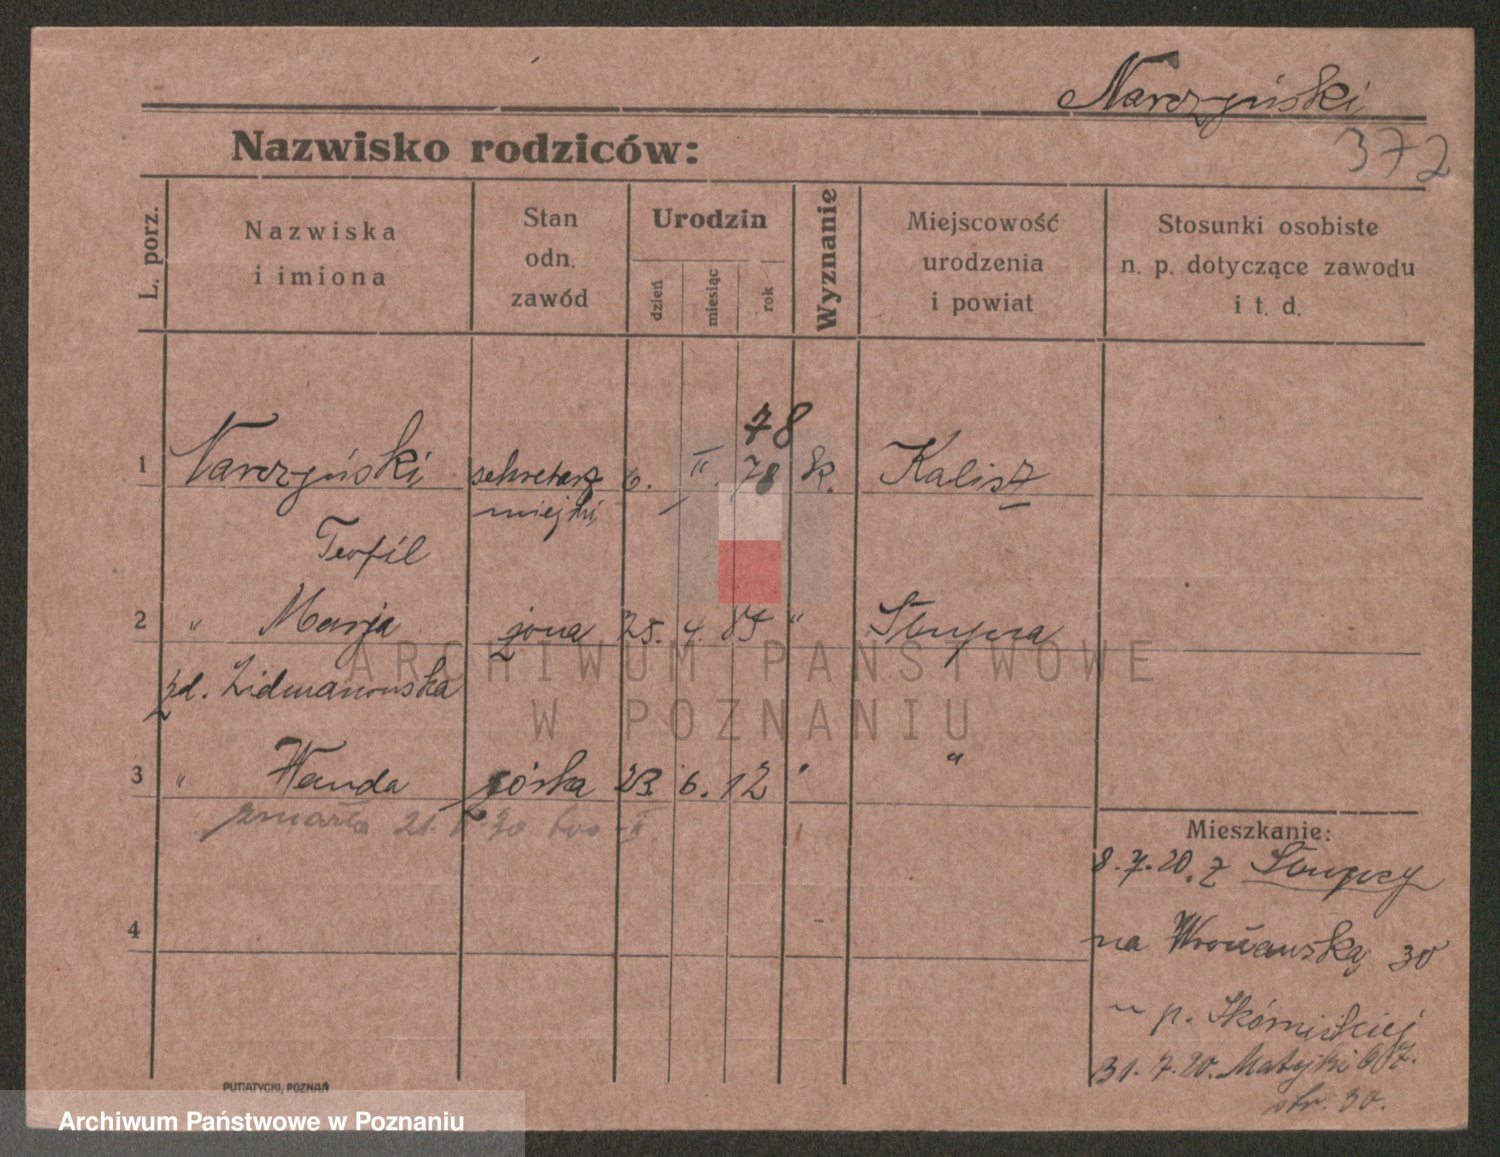 Narczyński
372
Nazwisko rodziców:
L. porz.
Nazwiska
i imiona
Stan
odn.
zawód
Urodzin
dzień
miesiąc
rok
Wyznanie
Miejscowość
urodzenia
i powiat
Stosunki osobiste
n. p. dotyczące zawodu
i t. d.
78
1 Narczyński sekretarz 6. II 78 k. Kalisz
miejski
Teofil
2 " Marja żona 25. 4. 85 " Słupca
zd. Zidmanowska
3 " Wanda córka 23. 6. 12 " "
zmarła 21.
4
Mieszkanie:
8.7.20. z Słupcy
na Wrocławską 30
u p. Skórnickiej
31.7.20. Matejki
str. 30.
PUTIATYCKI, POZNAŃ
ARCHIWUM PAŃSTWOWE
W POZNANIU
Archiwum Państwowe w Poznaniu